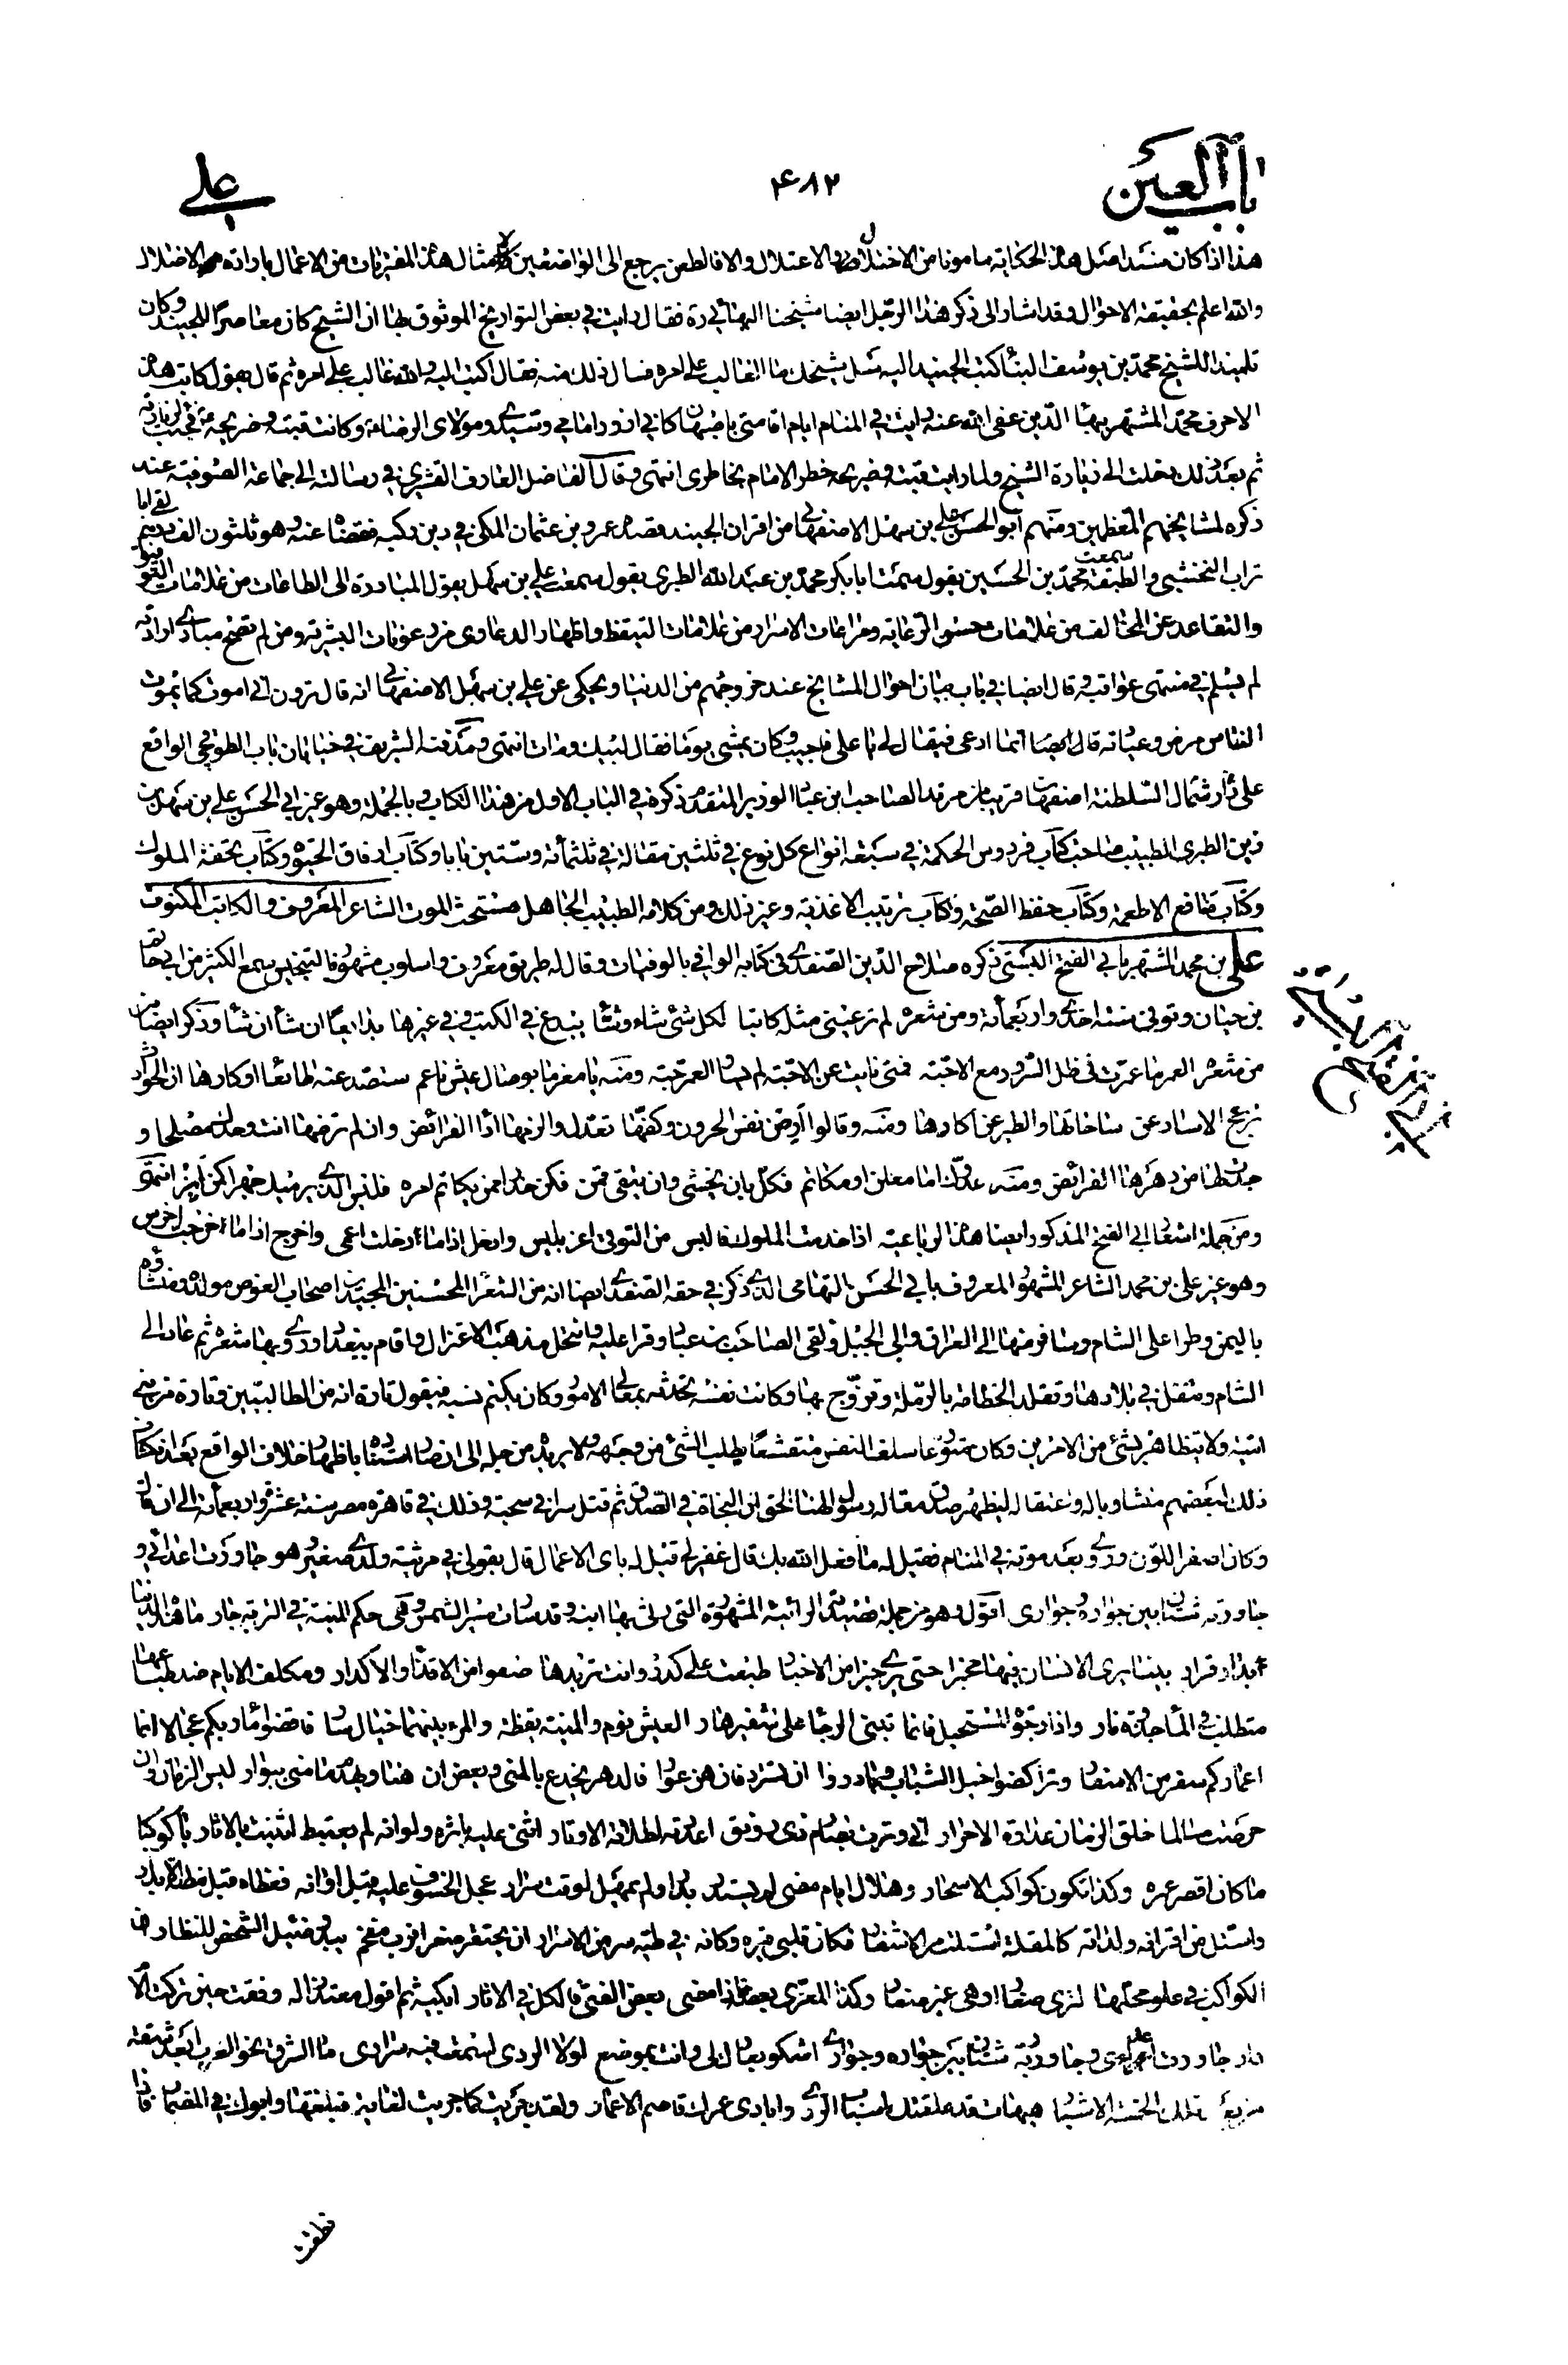 باب العين
۴۸۲
علي
هذا اذا كان سند اصل هذه الحكاية مامونا من الاختلاط والاعتلال والا فالطعن يرجع الى الواضعين لامثال هذه المفتريات من الاعمال بارادة الاضلال
والله اعلم بحقيقة الاحوال وقد اشار الى ذكر هذا الرجل ايضا شيخنا البهائي ره فقال رايت في بعض التواريخ الموثوق بها ان الشيخ كان معاصرا للجنيد وكان
تلميذا للشيخ محمد بن يوسف البنا كتب الجنيد اليه سل شيخك ما الغالب على امره فسال ذلك منه فقال اكتب اليه والله غالب على امره ثم قال يقول كاتب هذه
الاحرف محمد المشتهر ببهاء الدين عفى الله عنه رايت في المنام ايام اقامتي باصفهان كاني ازور امامي وسيدي ومولاي الرضا ع وكانت قبته وضريحه
ثم بعد ذلك دخلت الى زيارة الشيخ ولما رايت قبته وضريحه خطر الامام بخاطري انتهى وقال الفاضل العارف القشيري في رسالته الى جماعة الصوفية عند
ذكره لمشايخهم المعظمين ومنهم ابو الحسن علي بن سهل الاصفهاني من اقران الجنيد قصده عمرو بن عثمان المكي في دين ركبه فقضاه عنه وهو ثلثون الف درهم لقي ابا
تراب النخشبي والطبقة سمعت محمد بن الحسين يقول سمعت ابا بكر محمد بن عبد الله الطبري يقول سمعت علي بن سهل يقول المبادرة الى الطاعات من علامات التوفيق
والتقاعد عن المخالفة من علامات حسن الرعاية ومراعات الاسرار من علامات التيقظ واظهار الدعاوى من رعونات البشرية ومن لم تصح مبادي ارادته
لم يسلم في منتهى عواقبه وقال ايضا في باب بيان احوال المشايخ عند خروجهم من الدنيا ويحكى عن علي بن سهل الاصفهاني انه قال ترون اني اموت كما يموت
الناس مرض وعيادة قال ايضا انما ادعى فيقال لي يا علي فاجيب وكان يمشي يوما فقال لبيك ومات انتهى ومرقده الشريف في خيابان باب الطوقچي الواقع
على شمال السلطنة اصفهان قريبا من مرقد الصاحب ابن عباد الوزير المتقدم ذكره في الباب الاول من هذا الكتاب وبالجملة وهو غير ابي الحسن علي بن سهل بن
زين الطبري الطبيب صاحب كتاب فردوس الحكمة في سبعة انواع كل نوع في ثلثين مقالة في ثلثمائة وستين بابا وكتاب ارفاق الحيوة وكتاب تحفة الملوك
وكتاب منافع الاطعمة وكتاب حفظ الصحة وكتاب ترتيب الاغذية وغير ذلك ومن كلامه الطبيب الجاهل مستحث الموت الشاعر المعروف والكاتب
علي بن محمد الشهير بابي الفتح البستي ذكره صلاح الدين الصفدي في كتابه الوافي بالوفيات وقال له طريق معروف واسلوب مشهور في التجنيس سمع الكثير من ابي حاتم
بن حبان وتوفي سنة احدى واربعمائة ومن شعره لم تر عيني مثله كاتبا لكل شئ شاء وشاء يبدع في الكتب وفي غيرها بدايعا ان شاء انشاء وذكر ايضا
من شعره العمر ما عمرت في ظل السرور مع الاحبة فمتى نايت عن الاحبة لم يساو العمر حبة ومنه يا مغرما بوصال عيش ناعم ستصد عنه طائعا او كارها ان الحوادث
تزعج الاساد عن ساحاتها والطير عن اوكارها ومنه وقالوا رض نفس الحرون وكفها تعدل والزمها ادا الفرائض وان لم ترضها انت وحدك مصلحا و
جدت لها من دهرها الفرائض ومنه عدوك اما معلن او مكاتم فكل بان يخشى وان يتقى قمن فكن حذرا ممن يكاتم امره فليس الذي يرميك جهرا كمن انتهى
ومن جملة اشعار ابي الفتح المذكور ايضا هذه الرباعية اذا خدمت الملوك فالبس من التوقي اعز ملبس وادخل اذا ما دخلت اعمى واخرج اذا ما خرجت اخرس
وهو غير علي بن محمد الشاعر المشهور المعروف بابي الحسن التهامي الذي ذكر في حقه الصفدي ايضا انه من الشعراء المحسنين المجيدين اصحاب الغوص مولده ومنشاؤه
باليمن وطرا على الشام وسافر منها الى العراق والى الجبل ولقي الصاحب بن عباد وقرا عليه وانتحل مذهب الاعتزال واقام ببغداد وروى بها شعره ثم عاد الى
الشام وتنقل في بلادها وتقلد الخطابة بالرملة وتزوج بها وكانت نفسه تحدثه بمعالي الامور وكان يكتم نسبه فيقول تارة انه من الطالبيين وتارة من بني
امية ولا يتظاهر بشئ من الامرين وكان متورعا سلف النفس متقشفا يطلب الشئ من وجهه
وكان اصفر اللون وروي بعد موته في المنام فقيل له ما فعل الله بك قال غفر لي قيل له باي الاعمال قال بقولي في مرثية ولدي صغير وهو جاورت اعدائي و
جاور ربه شتان بين جواره وجواري اقول وهو من جملة قصيدته الرائية المشهورة التي رثى بها ابنه وقد سارت سير الشمس وهي حكم المنية في البرية جار ما هذه الدنيا
بدار قرار بينا يرى الانسان فيها مخبرا حتى يرى خبرا من الاخبار طبعت على كدر وانت تريدها صفوا من الاقذاء والاكدار ومكلف الايام ضد طباعها
متطلب في الماء جذوة نار واذا رجوت المستحيل فانما تبني الرجاء على شفير هار العيش نوم والمنية يقظة والمرء بينهما خيال سار فاقضوا مآربكم عجالا انما
اعماركم سفر من الاسفار وتراكضوا خيل الشباب وبادروا ان تسترد فانهن عوار فالدهر يخدع بالمنى ويغص ان هنا ويهدم ما بنى ببوار ليس الزمان وان
حرصت مسالما خلق الزمان عداوة الاحرار اني وترت بصارم ذي رونق اعددته لطلابة الاوتار اثني عليه باثره ولو انه لم يعتبط اثنيت بالاثار يا كوكبا
ما كان اقصر عمره وكذا تكون كواكب الاسحار وهلال ايام مضى لم يستدر بدرا ولم يمهل لوقت سرار عجل الخسوف عليه قبل اوانه فغطاه قبل مظنة الابدار
واستل من اقرانه ولداته كالمقلة استلت من الاشفار فكان قلبي قبره وكانه في طيه سر من الاسرار ان يحتقر صغر فرب مفخم يبدو ضئيل الشخص للنظار ان
الكواكب في علو محلها لترى صغارا وهي غير صغار ولد المعزى بعضه فاذا مضى بعض الفتى فالكل في الاثار ابكيه ثم اقول معتذرا له وفقت حين تركت الام
دار جاورت اعدائي وجاور ربه شتان بين جواره وجواري اشكو بعادك لي وانت بموضع لولا الردى لسمعت فيه سراري ما الشرق نحو الغرب ابعد شقة
من بعد تلك الخمسة الاشبار هيهات قد علقتك اسباب الردى وابادى عمرك قاصم الاعمار ولقد جريت كما جريت لغاية فبلغتها وابوك في المضمار فاذا
نطقت
ابي الفتح البستي